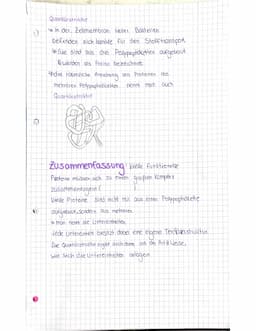 Quartärstruktur
→ In der Zellmembran vieler Bakterien
befinden sich Kanäle für den Stofftransport
→ Sie sind aus drei Polypeptidketten aufgebaut
& werden als Porine bezeichnet
→ die räumliche Anordnung von Proteinen aus
mehreren Polypeptidketten nennt man auch
Quartärstruktur
Zusammenfassung: viele funktionelle
Proteine müssen sich zu einem großen Komplex
zusammenlagern (
viele Proteine sind nicht nur aus einer Polypeptidkette
aufgebaut, sondern aus mehreren
→ man nennt sie Untereinheiten
Jede Untereinheit besitzt dabei eine eigene Tertiärstruktur
Die Quartärstruktur ergibt sich durch die Art & Weise,
wie sich die Untereinheiten anlagern